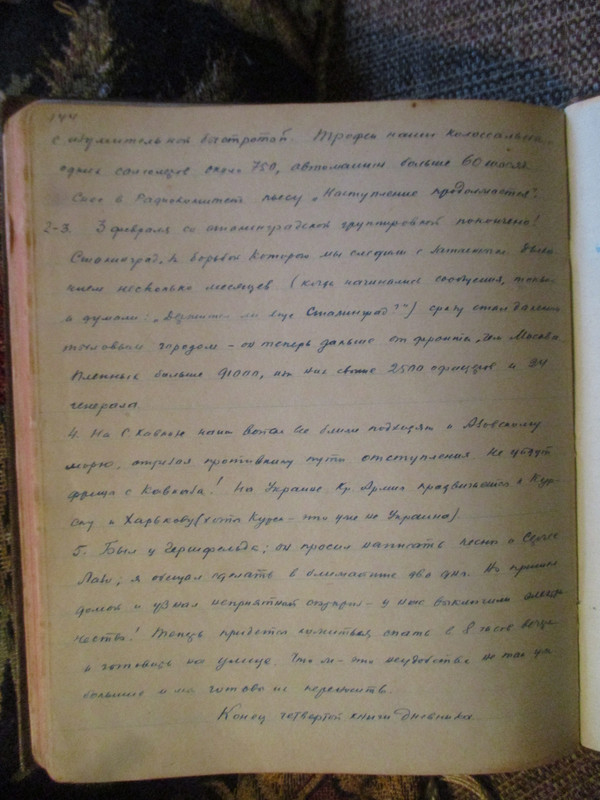 144
с изумительной быстротой. Трофеи наши колоссальны.
одних самолетов около 750, автомашин больше 60 тысяч.
в Радиокомитет пьесу „Наступление продолжается".
2-3. 3 февраля со сталинградской группировкой покончено!
Сталинград, за борьбой которой мы следили с
нием несколько месяцев (когда начинались сообщения, только
и думали: „Держится ли еще Сталинград?") сразу стал далеким
тыловым городом - он теперь дальше от фронта, чем Москва
Пленных больше 91000, из них свыше 2500 офицеров и 24
генерала
4. На С Кавказе наши войска все ближе подходят к Азовскому
морю, отрезая противнику пути отступления. Не уйдут
фрицы с Кавказа! На Украине Кр. Армия продвигается к Кур-
ску и Харькову (хотя Курск - это уже не Украина)
5. Был у Гершфельда; он просил написать песню о Сергее
Лазо; я обещал сделать в ближайшие два дня. Но пришел
домой и узнал неприятный сюрприз - у нас выключили электри-
чество! Теперь придется ложиться спать в 8 часов вечера
и готовить на улице. Что ж - это неудобства не так уж
большие и мы готовы их перенести.
Конец четвертой книги дневника